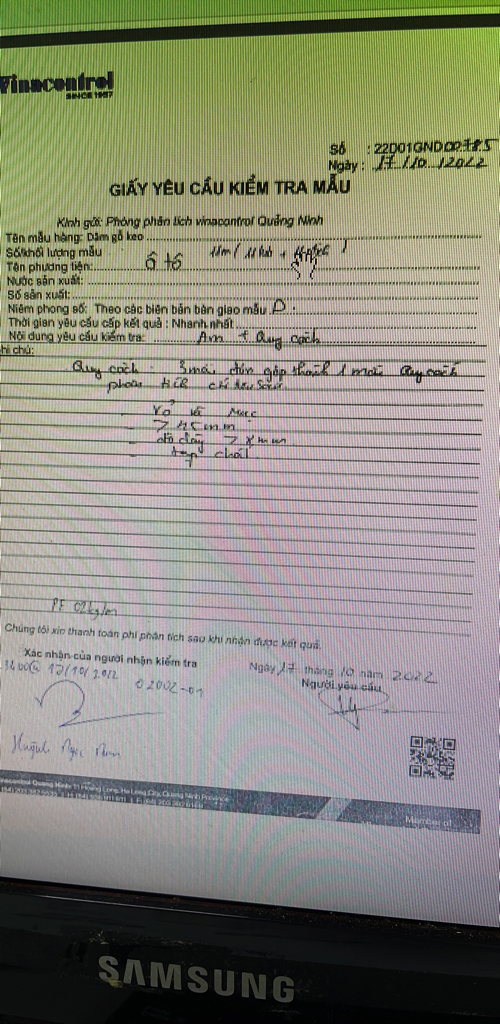 Vinacontrol
SINCE 1957
Số : 22D01GND02785
Ngày : 17/10/2022
GIẤY YÊU CẦU KIỂM TRA MẪU
Kính gửi: Phòng phân tích vinacontrol Quảng Ninh
Tên mẫu hàng: Dăm gỗ keo
Số/khối lượng mẫu
Tên phương tiện: Ô tô
Nước sản xuất:
Số sản xuất:
Niêm phong số: Theo các biên bản bàn giao mẫu
Thời gian yêu cầu cấp kết quả : Nhanh nhất
Nội dung yêu cầu kiểm tra: Ẩm + Quy cách
hi chú:
Quy cách - 3 mẫu đơn gộp thành 1 mẫu Quy cách
phân tích chỉ tiêu sau
- Vỏ và Mục
- > 45mm
- độ dày > 8mm
- tạp chất
PF 02kg/m
Chúng tôi xin thanh toán phí phân tích sau khi nhận được kết quả.
Xác nhận của người nhận kiểm tra
Ngày 17 tháng 10 năm 2022
17/10/2022
02002-01
Người yêu cầu
Huỳnh Ngọc
Vinacontrol Quảng Ninh: 11 Hoàng Long, Ha Long City, Quảng Ninh Province
Member of
SAMSUNG